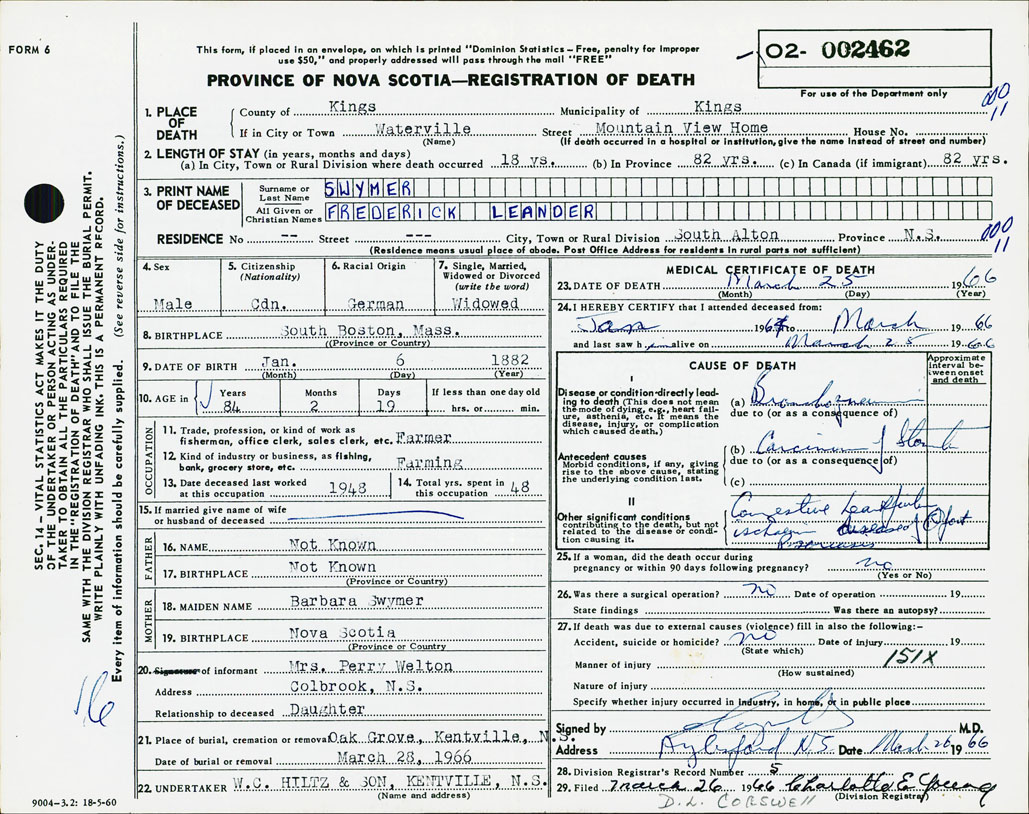 FORM 6
This form, if placed in an envelope, on which is printed "Dominion Statistics – Free, penalty for improper
use $50," and properly addressed will pass through the mail "FREE"
PROVINCE OF NOVA SCOTIA—REGISTRATION OF DEATH
02- 002462
For use of the Department only
000
11
1. PLACE OF DEATH
County of Kings Municipality of Kings
If in City or Town Waterville Street Mountain View Home House No.
(Name) (If death occurred in a hospital or institution, give the name instead of street and number)
2. LENGTH OF STAY (in years, months and days)
(a) In City, Town or Rural Division where death occurred 18 ys. (b) In Province 82 yrs. (c) In Canada (if immigrant) 82 yrs.
3. PRINT NAME OF DECEASED
Surname or Last Name SWYMER
All Given or Christian Names FREDERICK LEANDER
RESIDENCE No -- Street --- City, Town or Rural Division South Alton Province N.S.
000
11
(Residence means usual place of abode. Post Office Address for residents in rural parts not sufficient)
4. Sex Male
5. Citizenship (Nationality) Cdn.
6. Racial Origin German
7. Single, Married, Widowed or Divorced (write the word) Widowed
8. BIRTHPLACE South Boston, Mass.
(Province or Country)
9. DATE OF BIRTH Jan. 6 1882
(Month) (Day) (Year)
10. AGE in Years 84 Months 2 Days 19 If less than one day old hrs. or min.
OCCUPATION
11. Trade, profession, or kind of work as
fisherman, office clerk, sales clerk, etc. Farmer
12. Kind of industry or business, as fishing,
bank, grocery store, etc. Farming
13. Date deceased last worked at this occupation 1948
14. Total yrs. spent in this occupation 48
15. If married give name of wife
or husband of deceased
FATHER
16. NAME Not Known
17. BIRTHPLACE Not Known
(Province or Country)
MOTHER
18. MAIDEN NAME Barbara Swymer
19. BIRTHPLACE Nova Scotia
(Province or Country
20. Signature of informant Mrs. Perry Welton
Address Colbrook, N.S.
Relationship to deceased Daughter
21. Place of burial, cremation or removal Oak Grove, Kentville, N.S.
Date of burial or removal March 28, 1966
22. UNDERTAKER W.C. HILTZ & SON, KENTVILLE, N.S.
(Name and address)
MEDICAL CERTIFICATE OF DEATH
23. DATE OF DEATH March 25 1966
(Month) (Day) (Year)
24. I HEREBY CERTIFY that I attended deceased from:
Jan 196 to March 1966
and last saw him alive on March 25 1966
CAUSE OF DEATH
Approximate interval between onset and death
I
Disease or condition directly leading to death (This does not mean the mode of dying, e.g., heart failure, asthenia, etc. It means the disease, injury, or complication which caused death.)
(a)
due to (or as a consequence of)
Antecedent causes
Morbid conditions, if any, giving rise to the above cause, stating the underlying condition last.
(b) Carcinoma of
due to (or as a consequence of)
(c)
II
Other significant conditions
contributing to the death, but not related to the disease or condition causing it.
Congestive
Psoriasis
25. If a woman, did the death occur during
pregnancy or within 90 days following pregnancy? no
(Yes or No)
26. Was there a surgical operation? no Date of operation 19
State findings Was there an autopsy?
27. If death was due to external causes (violence) fill in also the following:-
Accident, suicide or homicide? no Date of injury 19
(State which)
Manner of injury 151X
(How sustained)
Nature of injury
Specify whether injury occurred in industry, in home, or in public place
Signed by M.D.
Address Aylesford N.S. Date March 26 1966
28. Division Registrar's Record Number 5
29. Filed March 26 1966 Charlotte E
(Division Registrar)
D.L. CORSWELL
SEC. 14 – VITAL STATISTICS ACT MAKES IT THE DUTY
OF THE UNDERTAKER OR PERSON ACTING AS UNDER-
TAKER TO OBTAIN ALL THE PARTICULARS REQUIRED
IN THE "REGISTRATION OF DEATH" AND TO FILE THE
SAME WITH THE DIVISION REGISTRAR WHO SHALL ISSUE THE BURIAL PERMIT.
WRITE PLAINLY WITH UNFADING INK. THIS IS A PERMANENT RECORD.
Every item of information should be carefully supplied. (See reverse side for instructions.)
16
9004-3.2: 18-5-60